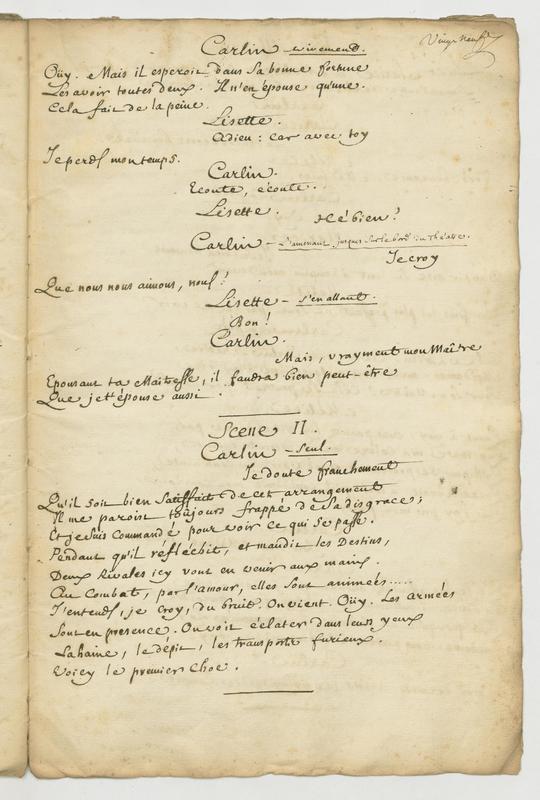 Vingt neuf
Carlin vivement.
Oüy. Mais il esperoit dans sa bonne fortune
Les avoir toutes deux. Il n'en épouse qu'une.
Cela fait de la peine.
Lisette.
Adieu : car avec toy
Je perds mon temps.
Carlin.
Ecoute, écoute.
Lisette.
Hé bien !
Carlin - L'amenant jusques sur le bord du théatre.
Je croy
Que nous nous aimons, nous !
Lisette - s'en allant.
Bon !
Carlin.
Mais, vrayment mon Maître
Epousant ta Maitresse, il faudra bien peut-être
Que je t'épouse aussi.
Scene II.
Carlin - seul.
Je doute franchement
Qu'il soit bien satisfait de cet arrangement
Il me paroist toûjours frappé de sa disgrace ;
Et je suis commandé pour voir ce qui se passe.
Pendant qu'il réfléchit, et maudit les Destins,
Deux Rivales icy vont en venir aux mains.
Au Combat, par l'amour, elles sont animées.....
J'entends, je croy, du bruit. On vient. Oüy. Les armées
Sont en presence. On voit éclater dans leurs yeux
La haine, le dépit, les transports furieux.
Voicy le premier choc.